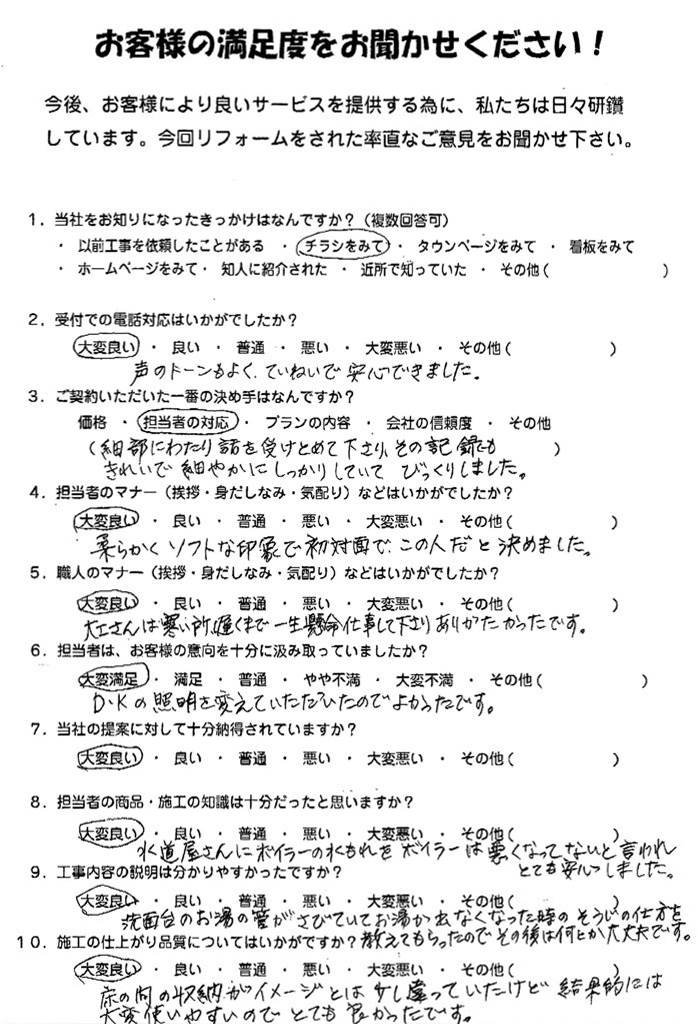 お客様の満足度をお聞かせください！
今後、お客様により良いサービスを提供する為に、私たちは日々研鑽
しています。今回リフォームをされた率直なご意見をお聞かせ下さい。
１．当社をお知りになったきっかけはなんですか？（複数回答可）
・ 以前工事を依頼したことがある ・ チラシをみて ・ タウンページをみて ・ 看板をみて
・ ホームページをみて ・ 知人に紹介された ・ 近所で知っていた ・ その他（ ）
２．受付での電話対応はいかがでしたか？
大変良い ・ 良い ・ 普通 ・ 悪い ・ 大変悪い ・ その他（ ）
声のトーンもよく、ていねいで安心できました。
３．ご契約いただいた一番の決め手はなんですか？
価格 ・ 担当者の対応 ・ プランの内容 ・ 会社の信頼度 ・ その他
（細部にわたり話を受けとめて下さり、その記録も ）
きれいで細やかにしっかりしていて びっくりしました。
４．担当者のマナー（挨拶・身だしなみ・気配り）などはいかがでしたか？
大変良い ・ 良い ・ 普通 ・ 悪い ・ 大変悪い ・ その他（ ）
柔らかくソフトな印象で初対面で、この人だと決めました。
５．職人のマナー（挨拶・身だしなみ・気配り）などはいかがでしたか？
大変良い ・ 良い ・ 普通 ・ 悪い ・ 大変悪い ・ その他（ ）
大工さんは寒い所、遅くまで一生懸命仕事して下さりありがたかったです。
６．担当者は、お客様の意向を十分に汲み取っていましたか？
大変満足 ・ 満足 ・ 普通 ・ やや不満 ・ 大変不満 ・ その他（ ）
D・Kの照明を変えていただいたのでよかったです。
７．当社の提案に対して十分納得されていますか？
大変良い ・ 良い ・ 普通 ・ 悪い ・ 大変悪い ・ その他（ ）
８．担当者の商品・施工の知識は十分だったと思いますか？
大変良い ・ 良い ・ 普通 ・ 悪い ・ 大変悪い ・ その他（ ）
水道屋さんにボイラーの水もれをボイラーは悪くなってないと言われ
とても安心しました。
９．工事内容の説明は分かりやすかったですか？
大変良い ・ 良い ・ 普通 ・ 悪い ・ 大変悪い ・ その他（ ）
洗面台のお湯の管がさびていてお湯が出なくなった時のそうじの仕方を
教えてもらったのでその後は何とか大丈夫です。
１０．施工の仕上がり品質についてはいかがですか？
大変良い ・ 良い ・ 普通 ・ 悪い ・ 大変悪い ・ その他（ ）
床の間の収納がイメージとは少し違っていたけど 結果的には
大変使いやすいのでとても良かったです。